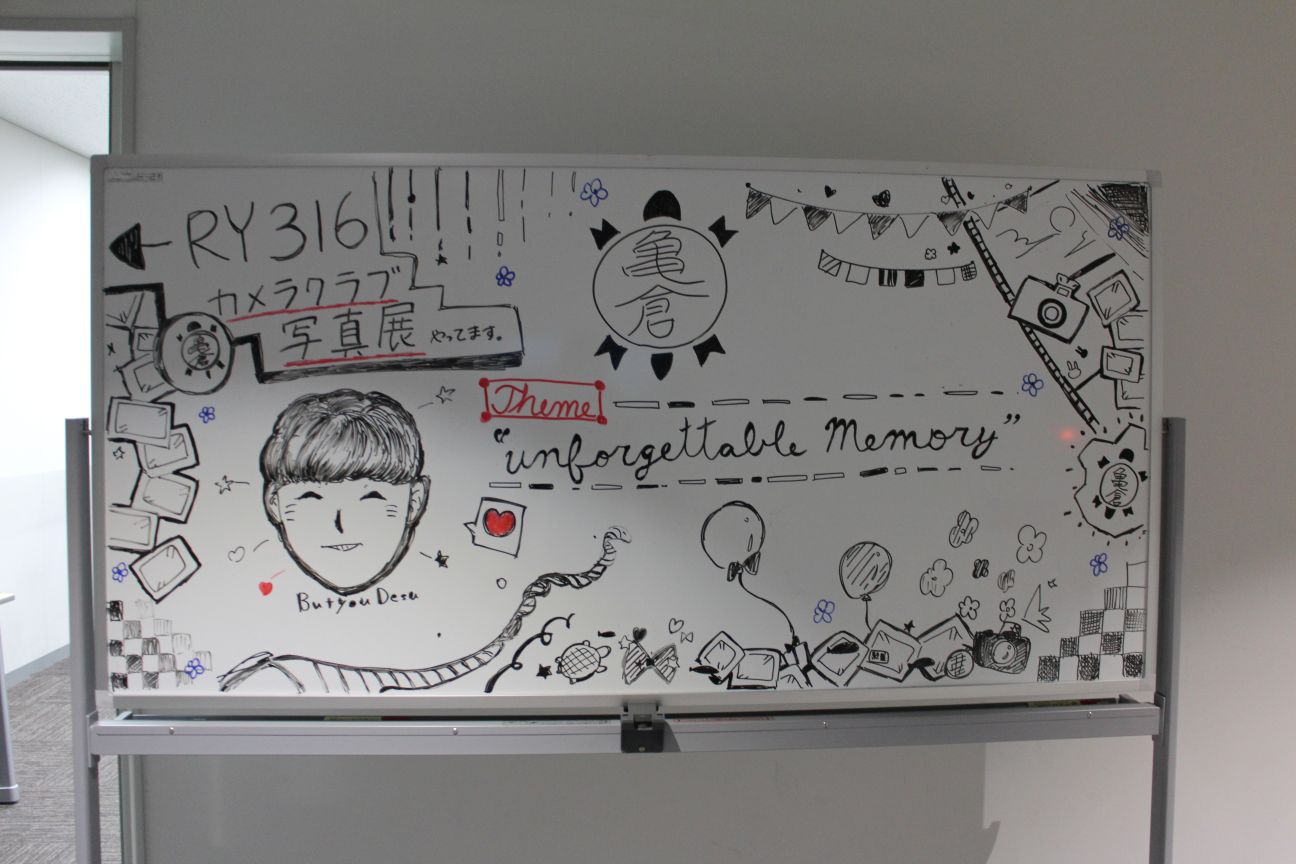 RY316
カメラクラブ
写真展 やってます。
亀倉
亀倉
Theme
“unforgettable Memory”
ButyouDesu
亀倉